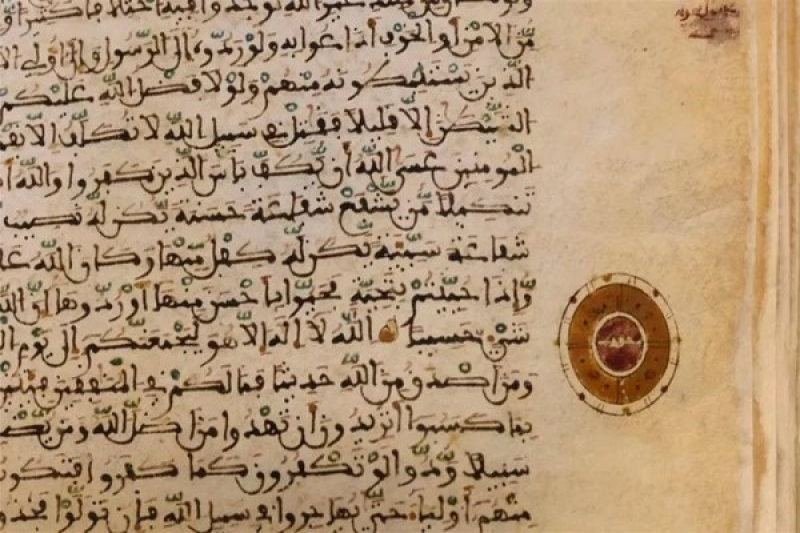 غير الله لوجدوا فيه اختلافا كثيرا
من الامن أو الخوف أذاعوا به ولو ردوه إلى الرسول وإلى أولي
الذين يستنبطونه منهم ولولا فضل الله عليكم
الشيطن إلا قليلا فقتل في سبيل الله لا تكلف إلا نف
المومنين عسى الله أن يكف بأس الذين كفروا والله أ
تنكيلا من يشفع شفاعة حسنة يكن له نصيب
شفاعة سيئة يكن له كفل منها وكان الله على
وإذا حييتم بتحية فحيوا بأحسن منها أو ردوها إن الله
شيء حسيبا الله لا إله إلا هو ليجمعنكم إلى يوم ال
ومن أصدق من الله حديثا فما لكم في المنفقين فئتين
بما كسبوا أتريدون أن تهدوا من أضل الله ومن يضل
سبيلا ودوا لو تكفرون كما كفروا فتكونو
منهم أولياء حتى يهاجروا في سبيل الله فإن تولوا فخذو